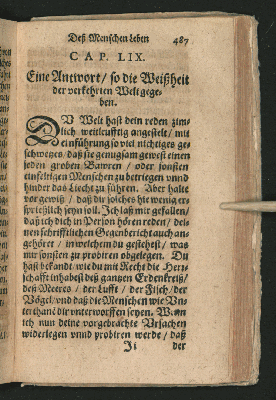 Deß Menschen leben 487
CAP. LIX.
Eine Antwort / so die Weißheit
der verkehrten Welt gege-
ben.
DU Welt hast dein reden zim-
lich weitleufftig angestelt / mit
einführung so viel nichtiges ge-
schwetzes / daß sie genugsam gewest einen
jeden groben Bawren / oder sonsten
einfeltigen Menschen zu betriegen vnnd
hinder das Liecht zu führen. Aber halte
vor gewiß / daß dir solches hie wenig er-
sprießlich seyn sol. Ich laß mir gefallen /
daß ich dich in Person hören reden / dei-
nen schrifftlichen Gegenbericht auch an-
gehöret / in welchem du gestehest / was
mir sonsten zu probiren obgelegen. Du
hast bekandt / wie du mit Recht die Herr-
schafft inhabest deß gantzen Erdenkreiß /
deß Meeres / der Lufft / der Fisch / der
Vögel / vnd daß die Menschen wie Vn-
terthane dir vnterworffen seyen. Wenn
ich nun deine vorgebrachte Vrsachen
widerlegen vnnd probiren werde / daß
Ii der